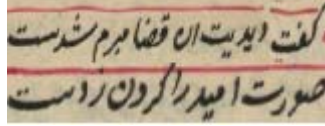 کفت ایدیت ان قضا مبرم شدست
صورت امید را کردن زدست